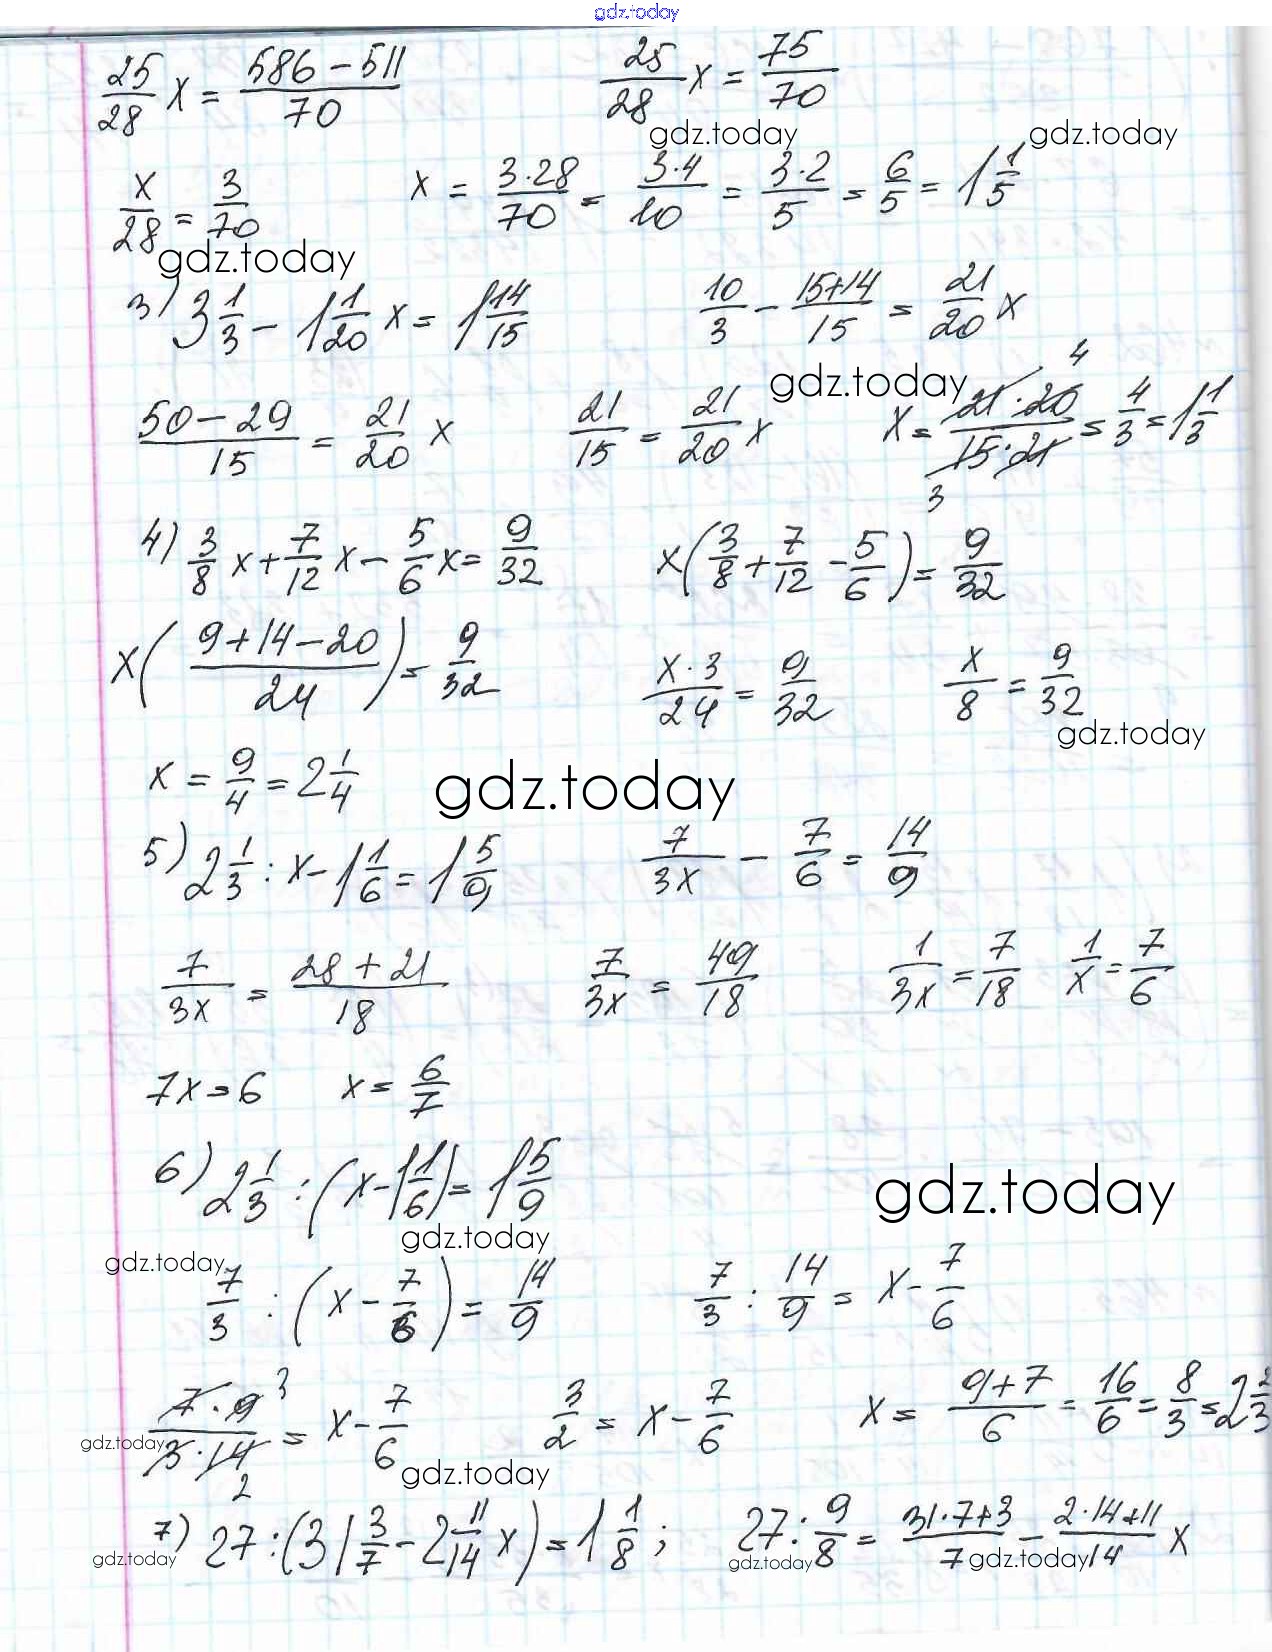 gdz.today
25/28 x = (586 - 511)/70    25/28 x = 75/70
gdz.today    gdz.today
x/28 = 3/70    x = (3·28)/70 = (3·4)/10 = (3·2)/5 = 6/5 = 1 1/5
gdz.today
3) 3 1/3 - 1 1/20 x = 1 14/15    10/3 - (15+14)/15 = 21/20 x
gdz.today
(50 - 29)/15 = 21/20 x    21/15 = 21/20 x    x = (21·20 4)/(15·21 3) = 4/3 = 1 1/3
4) 3/8 x + 7/12 x - 5/6 x = 9/32    x(3/8 + 7/12 - 5/6) = 9/32
x((9+14-20)/24) = 9/32    (x·3)/24 = 9/32    x/8 = 9/32
gdz.today
x = 9/4 = 2 1/4    gdz.today
5) 2 1/3 : x - 1 1/6 = 1 5/9    7/3x - 7/6 = 14/9
7/3x = (28 + 21)/18    7/3x = 49/18    1/3x = 7/18    1/x = 7/6
7x = 6    x = 6/7
6) 2 1/3 : (x - 1 1/6) = 1 5/9
gdz.today    gdz.today
gdz.today
7/3 : (x - 7/6) = 14/9    7/3 : 14/9 = x - 7/6
(7·9 3)/(3·14 2) = x - 7/6    3/2 = x - 7/6    x = (9+7)/6 = 16/6 = 8/3 = 2 2/3
gdz.today    gdz.today
7) 27 : (31 3/7 - 2 11/14 x) = 1 1/8 ;    27 : 9/8 = (31·7+3)/7 - (2·14+11)/14 x
gdz.today    gdz.today    gdz.today